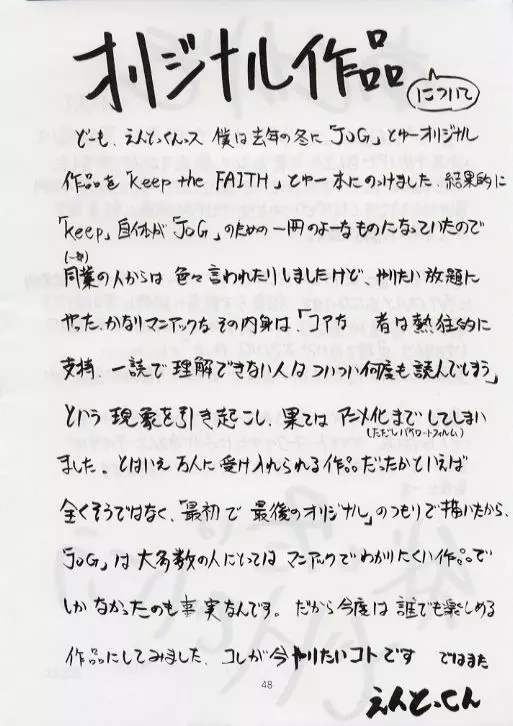 オリジナル作品
について
どーも、えんどっくんっス 僕は去年の冬に「JoG」とゆーオリジナル
作品を「Keep the FAITH」とゆー本にのっけました、結果的に
「Keep」自体が「JoG」のための一冊のよーなものになっていたので
(一部)
同業の人からは 色々言われたりしましたけど、やりたい放題に
やった、かなりマニアックな その内身は「コアな 者は熱狂的に
支持、一読で理解できない人は ついつい何度も読んでしまう」
という現象を引き起こし、果ては アニメ化までしてしまい
(ただしパイロットフィルム)
ました。とはいえ万人に受け入れられる作品だったかといえば
全くそうではなく、「最初で最後のオリジナル」のつもりで描いたから、
「JoG」は大多数の人にとっては マニアックでわかりにくい作品で
しかなかったのも事実なんです。だから今度は誰でも楽しめる
作品にしてみました、コレが今やりたいコトです ではまた
48